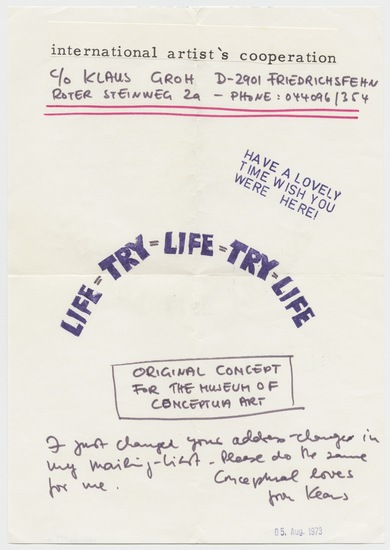 international artist`s cooperation
c/o KLAUS GROH D-2901 FRIEDRICHSFEHN
ROTER STEINWEG 2a - PHONE: 044096/354
HAVE A LOVELY
TIME WISH YOU
WERE HERE!
LIFE = TRY = LIFE = TRY = LIFE
ORIGINAL CONCEPT
FOR THE MUSEUM OF
CONCEPTUA ART
I just changed your address-changes in
my mailing-list. Please do the same
for me. Conceptual loves
from Klaus
05. Aug. 1973